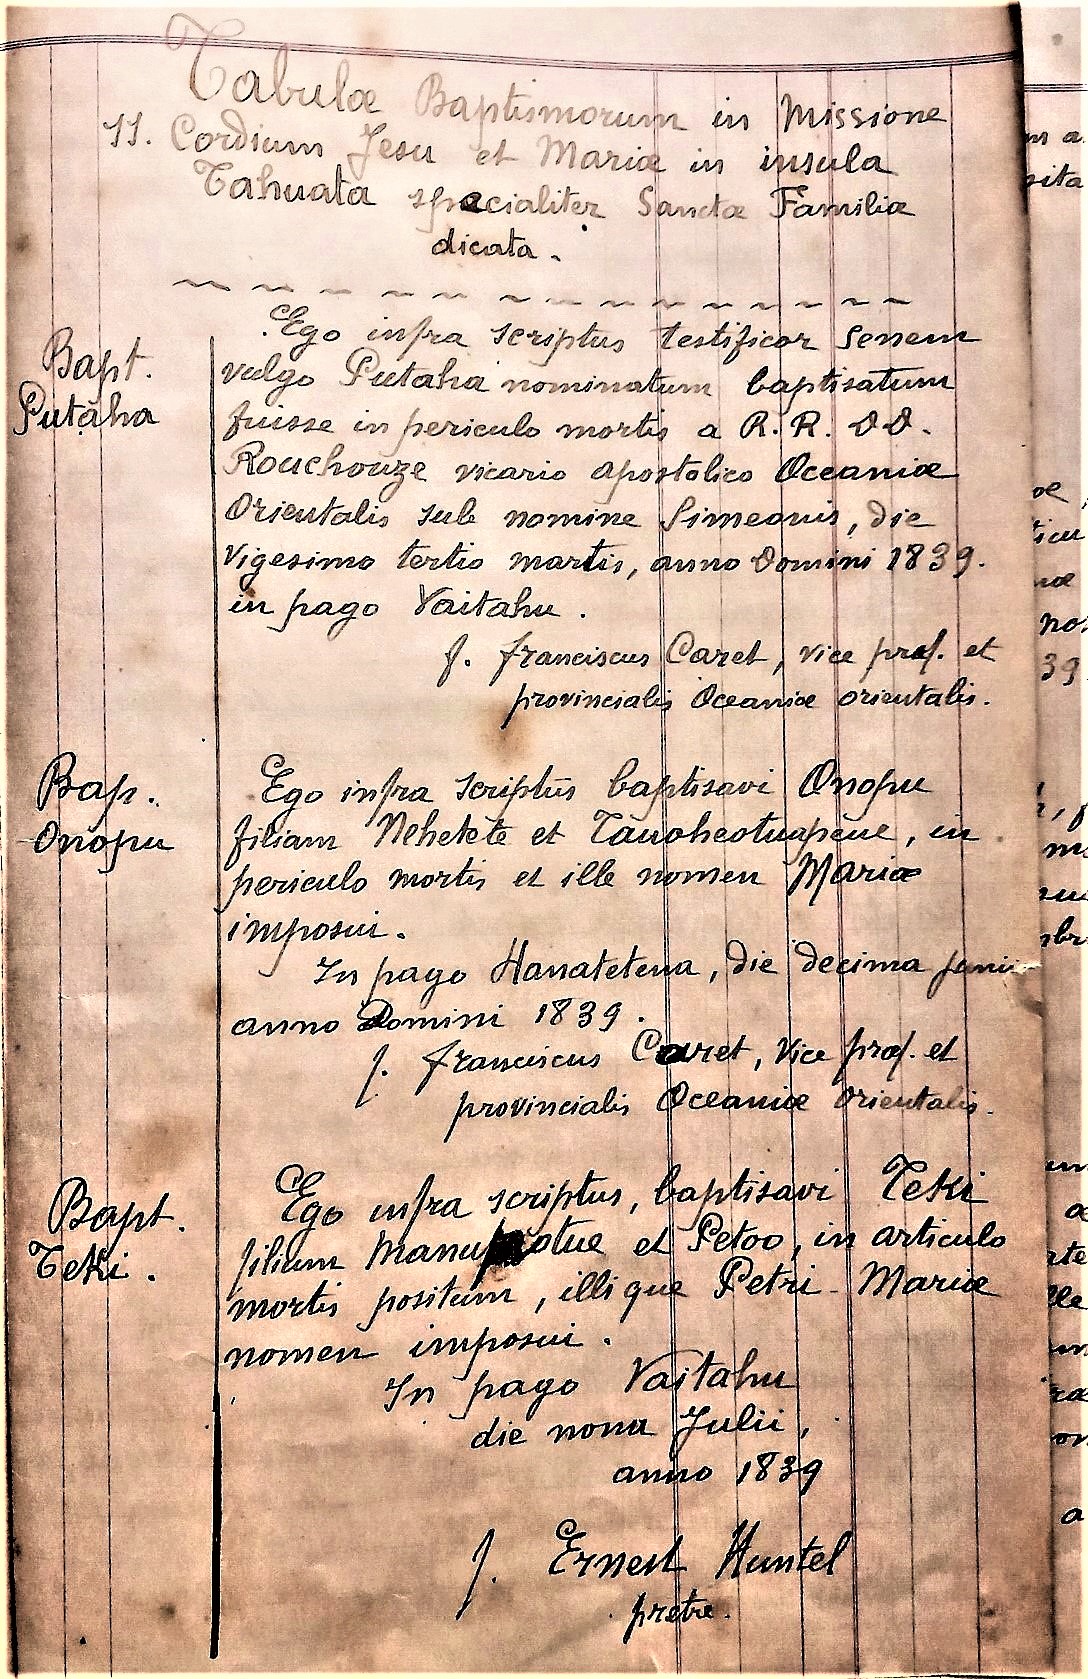 Tabulæ Baptismorum in Missione
SS. Cordium Jesu et Mariæ in insula
Tahuata specialiter Sanctæ Familiæ
dicata.
Bapt.
Putaha
Ego infra scriptus testificor senem
vulgo Putaha nominatum baptisatum
fuisse in periculo mortis a R. R. DD.
Rouchouze vicario apostolico Oceaniæ
Orientalis sub nomine Simeonis, die
vigesimo tertio martis, anno Domini 1839.
in pago Vaitahu.
f. franciscus Caret, vice præf. et
provincialis Oceaniæ orientalis.
Bap.
Onopu
Ego infra scriptus baptisavi Onopu
filiam Nehetete et Tauoheotuapeue, in
periculo mortis et ille nomen Mariæ
imposui.
In pago Hanatetena, die decima junii
anno Domini 1839.
f. franciscus Caret, Vice præf. et
provincialis Oceaniæ Orientalis.
Bapt.
Teki.
Ego infra scriptus, baptisavi Teki
filium et Petoo, in articulo
mortis positum, illi que Petri-Mariæ
nomen imposui.
In pago Vaitahu
die nona Julii,
anno 1839
f. Ernest Huntel
pretre.